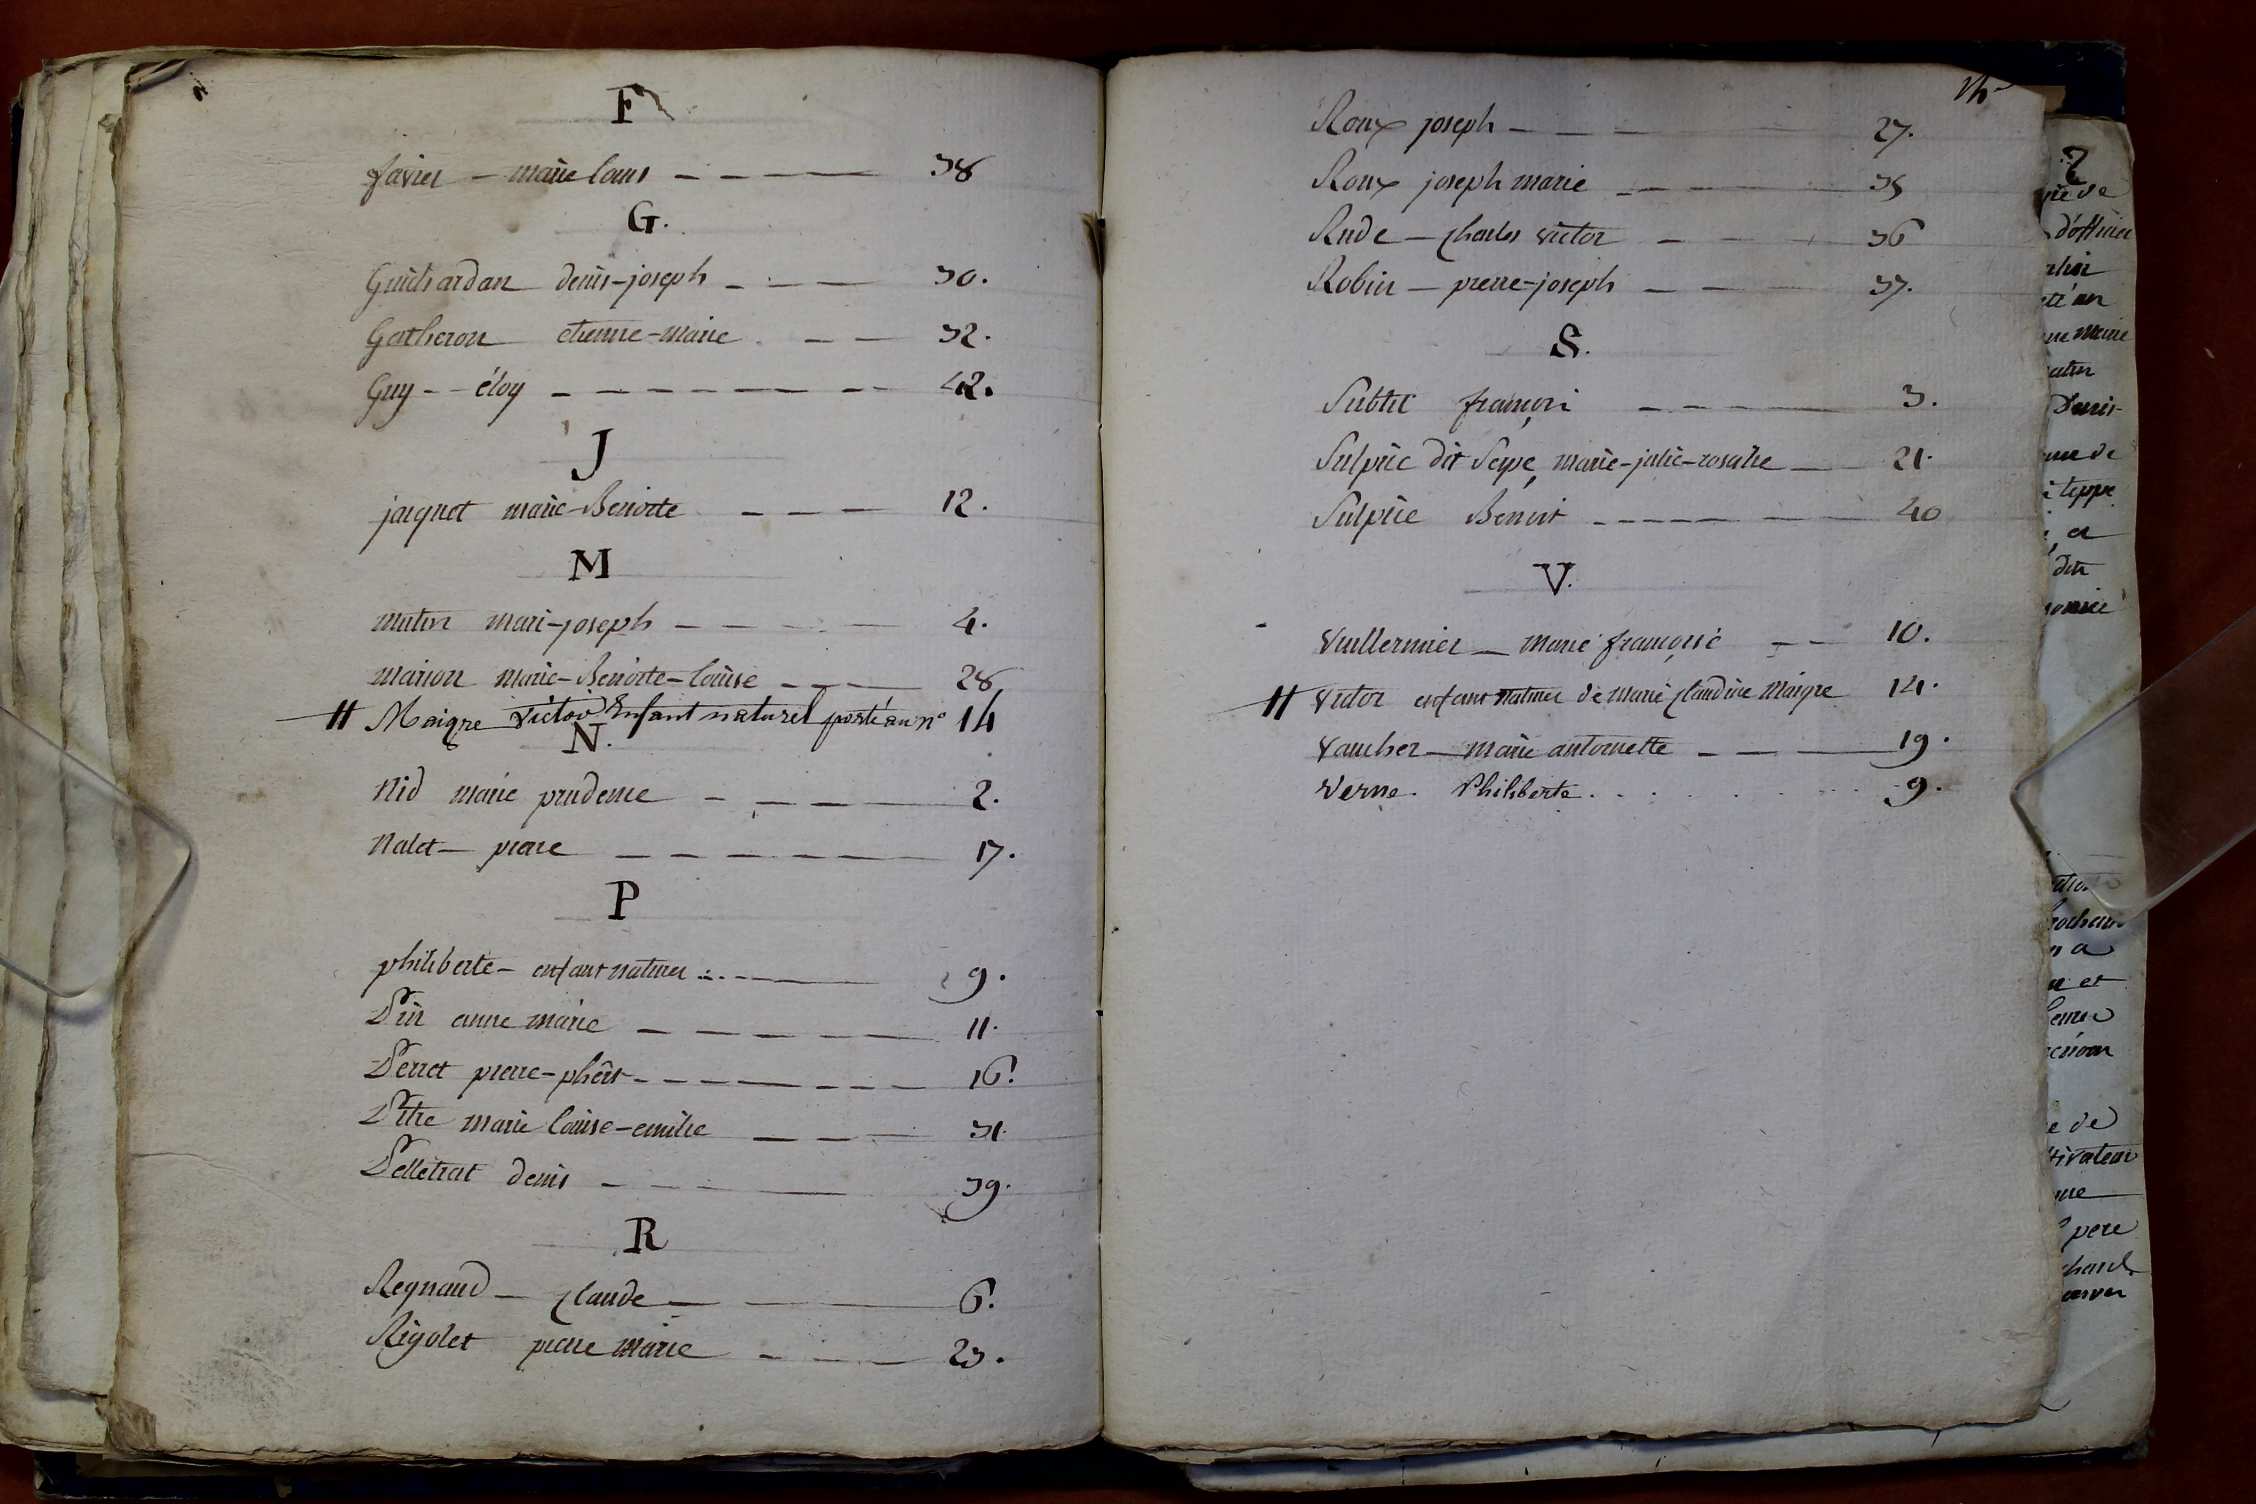 F
favier - marie louis - - - - 38
G.
Guichardan denis-joseph - - - 30.
Gatheron etienne-marie - - 32.
Guy - - éloy - - - - - - - - 42.
J
jaquet marie-Benoite - - - 12.
M
mutin mari-joseph - - - - 4.
marion marie-Benoite-louise - - - 28
H Maigre victor Enfant naturel porté au n° 14
N.
nid marie prudence - - - - 2.
nalet - pierre - - - - - - 17.
P
philiberte - enfant naturel - - - 9.
Pin anne marie - - - - - 11.
Perret pierre-phert - - - - - - - 16.
Pitre marie louise-emilie - - - 31.
Pelletrat denis - - - - 39.
R
Regnaud - Claude - - 6.
Rigolet pierre marie - - - - 23.
Roux joseph - - - 27.
Roux joseph marie - - - 35
Rude - Charles victor - - - 36
Robin - pierre-joseph - - - 37.
S.
Subtil françois - - - - 3.
Sulpice dit Seppe marie-julie-rosalie - 21.
Sulpice Benoit - - - - - - 40
V.
Vuillermier - marie françoise - - 10.
H Victor enfant naturel de marie Claudine Maigre 14.
Vaucher - marie antoinette - - - 19.
Verne. Philiberte . . . . . . . 9.